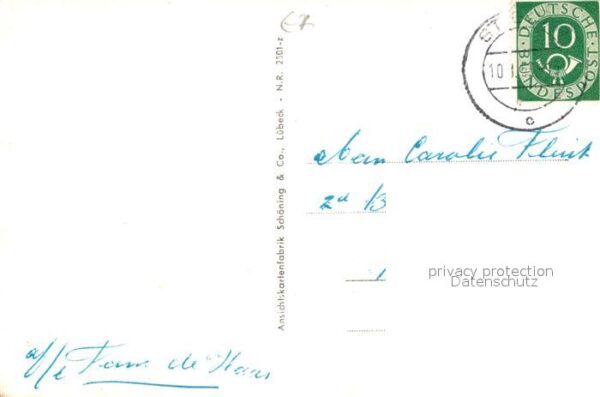 DEUTSCHE
10
BUNDESPOST
10.1
c
Ansichtskartenfabrik Schöning & Co., Lübeck - N.R. 2501-z
Aan Carolie
2d B
privacy protection
Datenschutz
a/z Fam de Haas